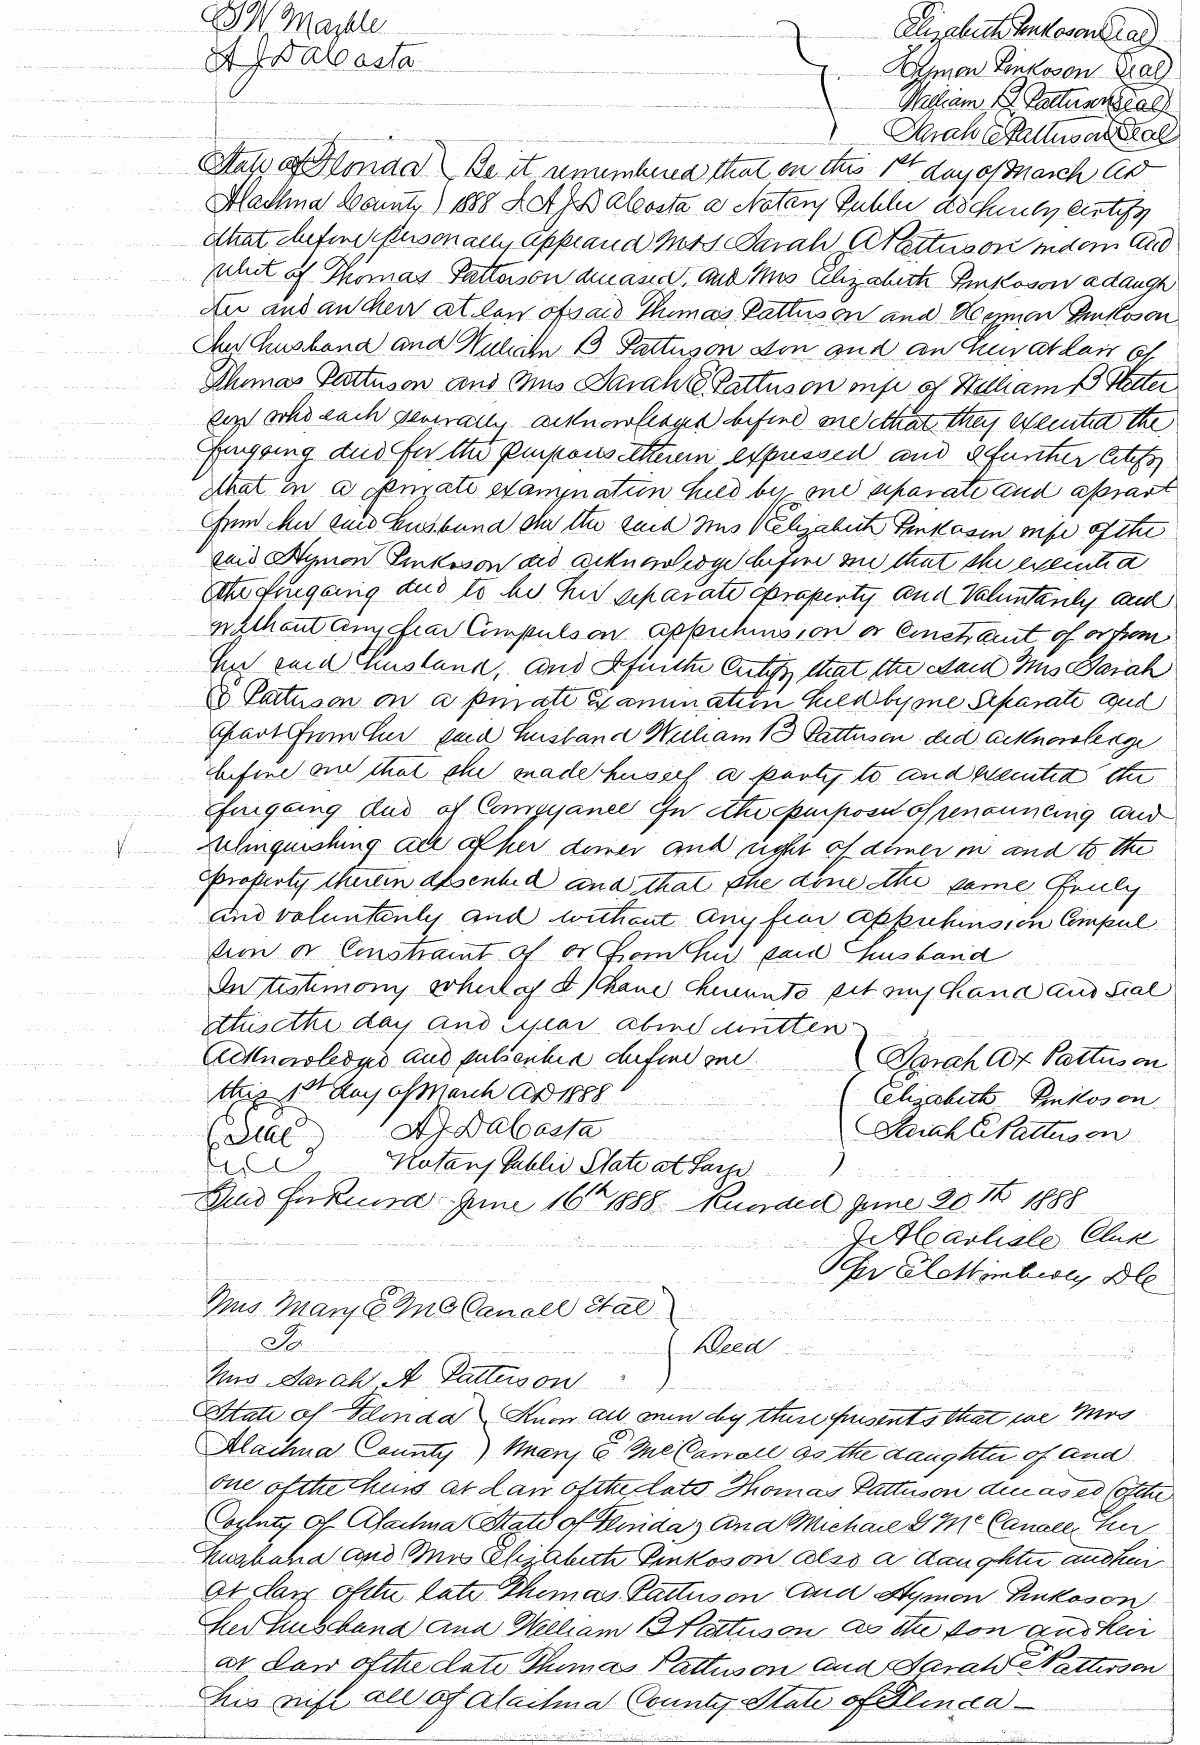 J W Marble
A J DaCosta
Elizabeth Pinkoson (Seal)
Hymon Pinkoson (Seal)
William B Patterson (Seal)
Sarah E Patterson (Seal)
State of Florida ) Be it remembered that on this 1st day of March AD
Alachua County ) 1888 I A J DaCosta a Notary Public do hereby certify
that before personally appeared Mrs Sarah A Patterson widow and
relict of Thomas Patterson deceased, and Mrs Elizabeth Pinkoson a daugh
ter and an heir at law of said Thomas Patterson and Hymon Pinkoson
her husband and William B Patterson son and an heir at law of
Thomas Patterson and Mrs Sarah E Patterson wife of William B Patter
son who each severally acknowledged before me that they executed the
foregoing deed for the purposes therein expressed and I further certify
that on a private examination held by me separate and apart
from her said husband she the said Mrs Elizabeth Pinkoson wife of the
said Hymon Pinkoson did acknowledge before me that she executed
the foregoing deed to be her separate property and Voluntarily and
without any fear Compulson apprehension or Constraint of or from
her said husband, and I further Certify that the said Mrs Sarah
E Patterson on a private Examination held by me Separate and
apart from her said husband William B Patterson did acknowledge
before me that she made herself a party to and executed the
foregoing deed of Conveyance for the purpose of renouncing and
relinquishing all of her dower and right of dower in and to the
property therein described and that she done the same freely
and voluntarily and without any fear apprehension Compul
sion or Constraint of or from her said husband
In testimony whereof I have hereunto set my hand and seal
this the day and year above written
Acknowledged and subscribed before me
this 1st day of March AD 1888
Sarah A x Patterson
Elizabeth Pinkoson
Sarah E Patterson
(Seal) A J DaCosta
Notary Public State at Large
Filed for Record June 16th 1888 Recorded June 20th 1888
J A Carlisle Clerk
Per
DC
Mrs Mary E McCanall Etal
To
Deed
Mrs Sarah A Patterson
State of Florida ) Know all men by these presents that we Mrs
Alachua County ) Mary E McCanall as the daughter of and
one of the heirs at law of the late Thomas Patterson deceased (of the
County of Alachua State of Florida) and Michael G McCanall her
husband and Mrs Elizabeth Pinkoson also a daughter and heir
at law of the late Thomas Patterson and Hymon Pinkoson
her husband and William B Patterson as the son and heir
at law of the late Thomas Patterson and Sarah E Patterson
his wife all of Alachua County State of Florida —